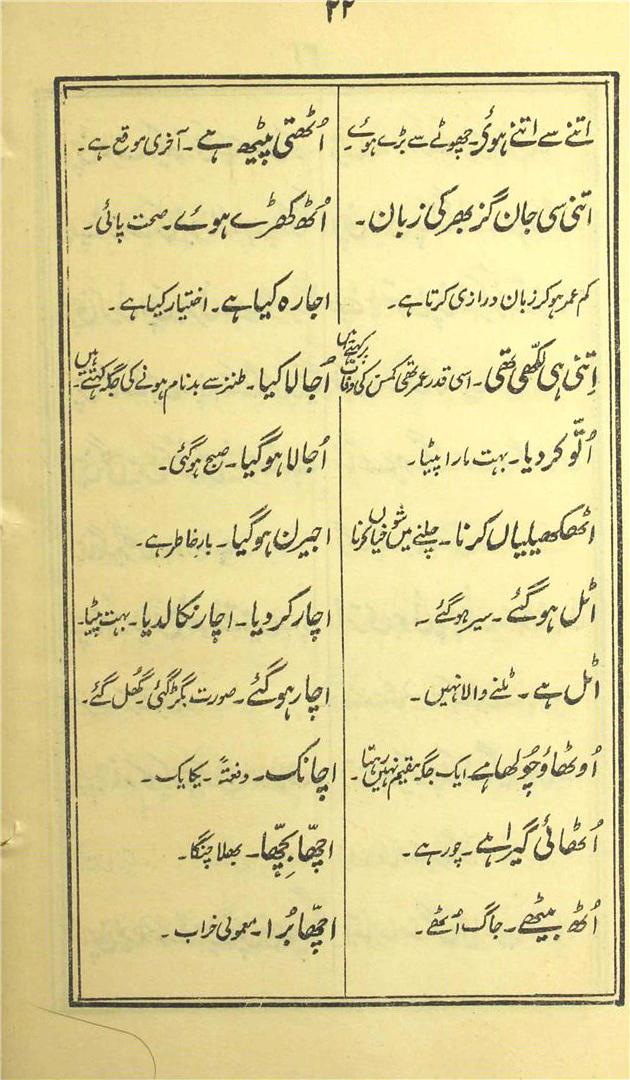 ۲۲
اتنے سے اتنے ہوئے۔ چھوٹے سے بڑے ہوئے۔
اتنی سی جان گز بھر کی زبان۔
کم عمر ہو کر زبان درازی کرتا ہے۔
اِتنی ہی لکھّی تھی۔ اسی قدر عمر تھی کمسن کی وفات پر کہتے ہیں
اُتّو کر دیا۔ بہت مارا پیٹا۔
اٹھکھیلیاں کرنا۔ چلنے میں شوخیاں کرنا
اٹل ہو گئے۔ سیر ہو گئے۔
اٹل ہے۔ ٹلنے والا نہیں۔
اُوٹھاؤ چُولھا ہے۔ ایک جگہ مقیم نہیں رہتا۔
اُٹھائی گیرا ہے۔ چور ہے۔
اُٹھ بیٹھے۔ جاگ اُٹھے۔
اُٹھتی پیٹھ ہے۔ آخری موقع ہے۔
اُٹھ کھڑے ہوئے۔ صحت پائی۔
اجارہ کیا ہے۔ اختیار کیا ہے۔
اُجالا کیا۔ طنز سے بدنام ہونے کی جگہ کہتے ہیں۔
اُجالا ہو گیا۔ صبح ہو گئی۔
اجیرن ہو گیا۔ بار خاطر ہے۔
اچار کر دیا۔ اچار نکالدیا۔ بہت پیٹا۔
اچار ہو گئے۔ صورت بگڑ گئی گھُل گئے۔
اچانک۔ دفعتہً۔ یکایک۔
اچھّا بچھّا۔ بھلا چنگا۔
اچھّا بُرا۔ معمولی خراب۔